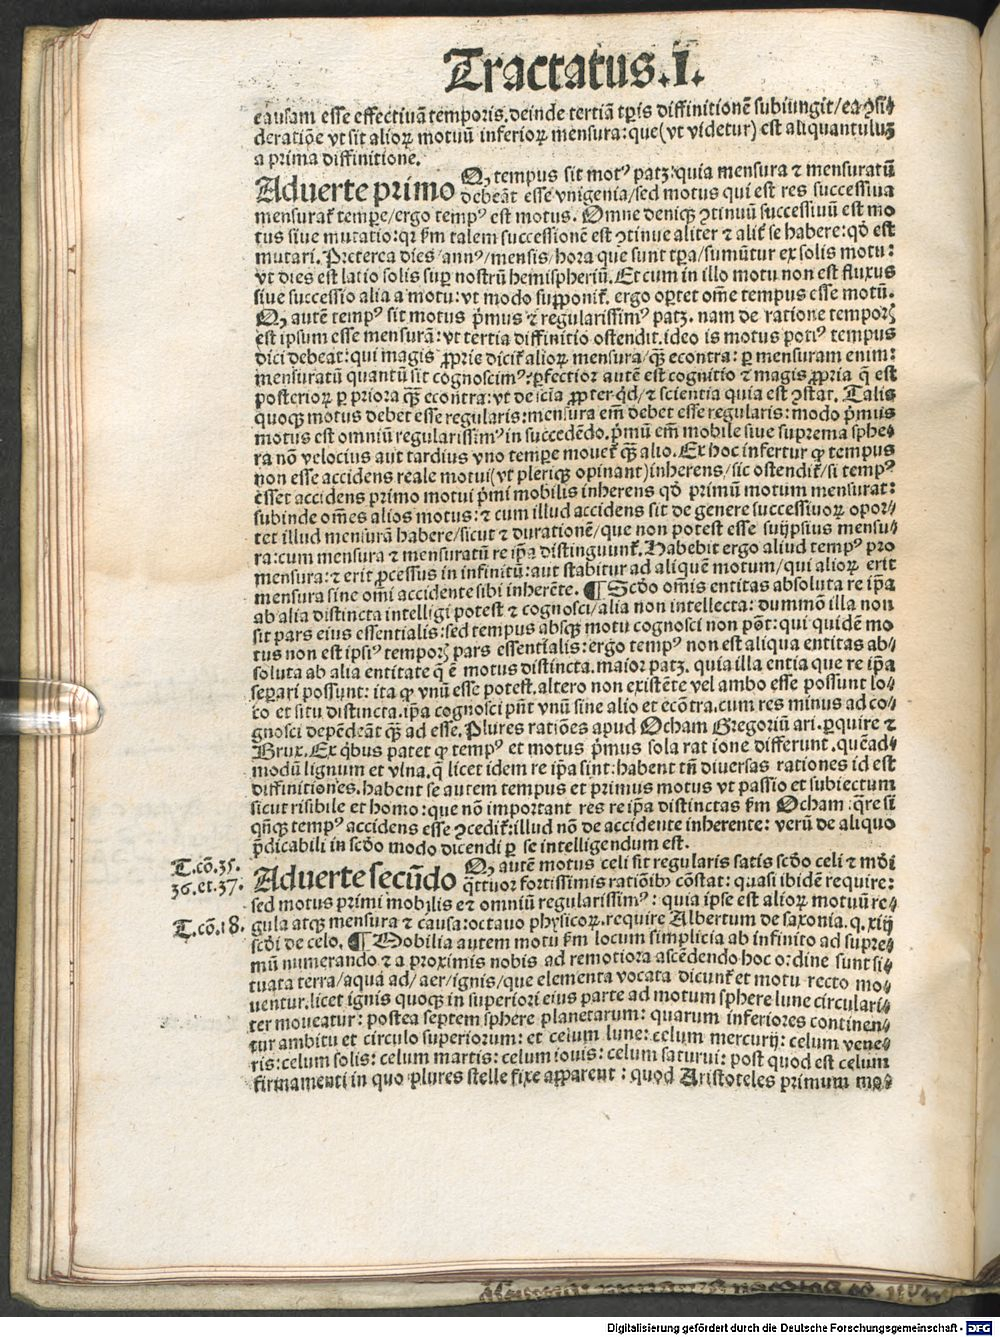 Tractatus.I.
causam esse effectiuā temporis.deinde tertiā tp̄is diffinitionē subiungit/ea ꝯsi⸗
deratiōe vt sit alioꝝ motuū inferioꝝ mensura:que(vt videtur) est aliquantuluꝫ
a prima diffinitione.
Aduerte primo Q, tempus sit motꝰ patꝫ:quia mensura ⁊ mensuratū
debeāt esse vnigenia/sed motus qui est res successiua
mensurat᷑ tempe/ergo tempꝰ est motus. Omne deniqꝫ ꝯtinuū successiuū est mo
tus siue mutatio:qꝛ km talem successionē est ꝯtinue aliter ⁊ alit᷑ se habere:qd̓ est
mutari.Preterea dies/annꝰ/mensis/hora que sunt tp̄a/sumūtur ex solis motu:
vt dies est latio solis suꝑ nostrū hemispheriū.Et cum in illo motu non est fluxus
siue successio alia a motu:vt modo supponit᷑. ergo oꝑtet om̄e tempus esse motū.
Q, autē tempꝰ sit motus p̄mus ⁊ regularissimꝰ patꝫ. nam de ratione temporꝭ
est ipsum esse mensurā:vt tertia diffinitio ostendit.ideo is motus potiꝰ tempus
dici debeat:qui magis ꝓprie dicit᷑ alioꝝ mensura/qꝫ̄ econtra: ꝑ mensuram enim:
mensuratū quantū sit cognoscimꝰ:ꝑfectior autē est cognitio ⁊ magis ꝓpria q̄ est
posterioꝝ ꝑ priora qꝫ̄ econtra:vt de scīa ꝓpter qd̓/⁊ scientia quia est ꝯstat. Talis
quoqꝫ motus debet esse regularis:mensura em̄ debet esse regularis: modo p̄mus
motus est omniū regularissimꝰ in succedēdo.p̄mū em̄ mobile siue suprema sphe⸗
ra nō velocius aut tardius vno tempe mouet᷑ qꝫ̄ alio.Ex hoc infertur ꝙ tempus
non esse accidens reale motui(vt pleriqꝫ opinant)inherens/sic ostendit᷑/si tempꝰ
esset accidens primo motui p̄mi mobilis inherens qd̓ primū motum mensurat:
subinde om̄es alios motus:⁊ cum illud accidens sit de genere successiuoꝝ opor⸗
tet illud mensurā habere/sicut ⁊ durationē/que non potest esse suijpsius mensu⸗
ra:cum mensura ⁊ mensuratū re ip̄a distinguunt᷑.Habebit ergo aliud tempꝰ pro
mensura:⁊ erit ꝓcessus in infinitū:aut stabitur ad aliquē motum/qui alioꝝ erit
mensura sine om̄i accidente sibi inherēte. ¶ Scd̓o om̄is entitas absoluta re ip̄a
ab alia distincta intelligi potest ⁊ cognosci/alia non intellecta: dummō illa non
sit pars eius essentialis:sed tempus absqꝫ motu cognosci non pōt:qui quidē mo
tus non est ipsiꝰ temporꝭ pars essentialis:ergo tempꝰ non est aliqua entitas ab⸗
soluta ab alia entitate q̄ ē motus distincta.maior patꝫ. quia illa entia que re ip̄a
separi possunt: ita ꝙ vnū esse potest.altero non existēte vel ambo esse possunt lo⸗
co et situ distincta.ip̄a cognosci pn̄t vnū sine alio et ecōtra.cum res minus ad co⸗
gnosci depēdeāt qꝫ̄ ad esse.Plures ratiōes apud Ocham Gregoriū ari.ꝑquire ⁊
Brux.Ex qb̓us patet ꝙ tempꝰ et motus p̄mus sola rat ione differunt.quēad⸗
modū lignum et vlna.q̄ licet idem re ip̄a sint:habent tn̄ diuersas rationes id est
diffinitiones.habent se autem tempus et primus motus vt passio et subiectum
sicut risibile et homo:que nō important res re ip̄a distinctas km Ocham:q̄re si
qn̄qꝫ tempꝰ accidens esse ꝯcedit᷑:illud nō de accidente inherente: verū de aliquo
p̄dicabili in scd̓o modo dicendi ꝑ se intelligendum est.
T.cō.35.
36.et.37.
Aduerte secūdo Q, autē motus celi sit regularis satis scd̓o celi ⁊ mōi
q̄ttuor fortissimis ratiōibꝫ cōstat: quasi ibidē require:
sed motus primi mobilis et omniū regularissimꝰ: quia ipse est alioꝝ motuū re⸗
T.cō.18.
gula atqꝫ mensura ⁊ causa:octauo physicoꝝ.require Albertum de saxonia.q.xiij
scd̓i de celo. ¶ Mobilia autem motu km locum simplicia ab infinito ad supre⸗
mū numerando ⁊ a proximis nobis ad remotiora ascēdendo hoc ordine sunt si⸗
tuata terra/aqua ad/aer/ignis/que elementa vocata dicunt᷑ et motu recto mo⸗
uentur.licet ignis quoqꝫ in superiori eius parte ad motum sphere lune circulari⸗
ter moueatur: postea septem sphere planetarum: quarum inferiores continen⸗
tur ambitu et circulo superiorum: et celum lune: celum mercurij: celum vene⸗
ris:celum solis: celum martis: celum iouis: celum saturui: post quod est celum
firmamenti in quo plures stelle fixe apparent: quod Aristoteles primum mo⸗
Digitalisierung gefördert durch die Deutsche Forschungsgemeinschaft - DFG